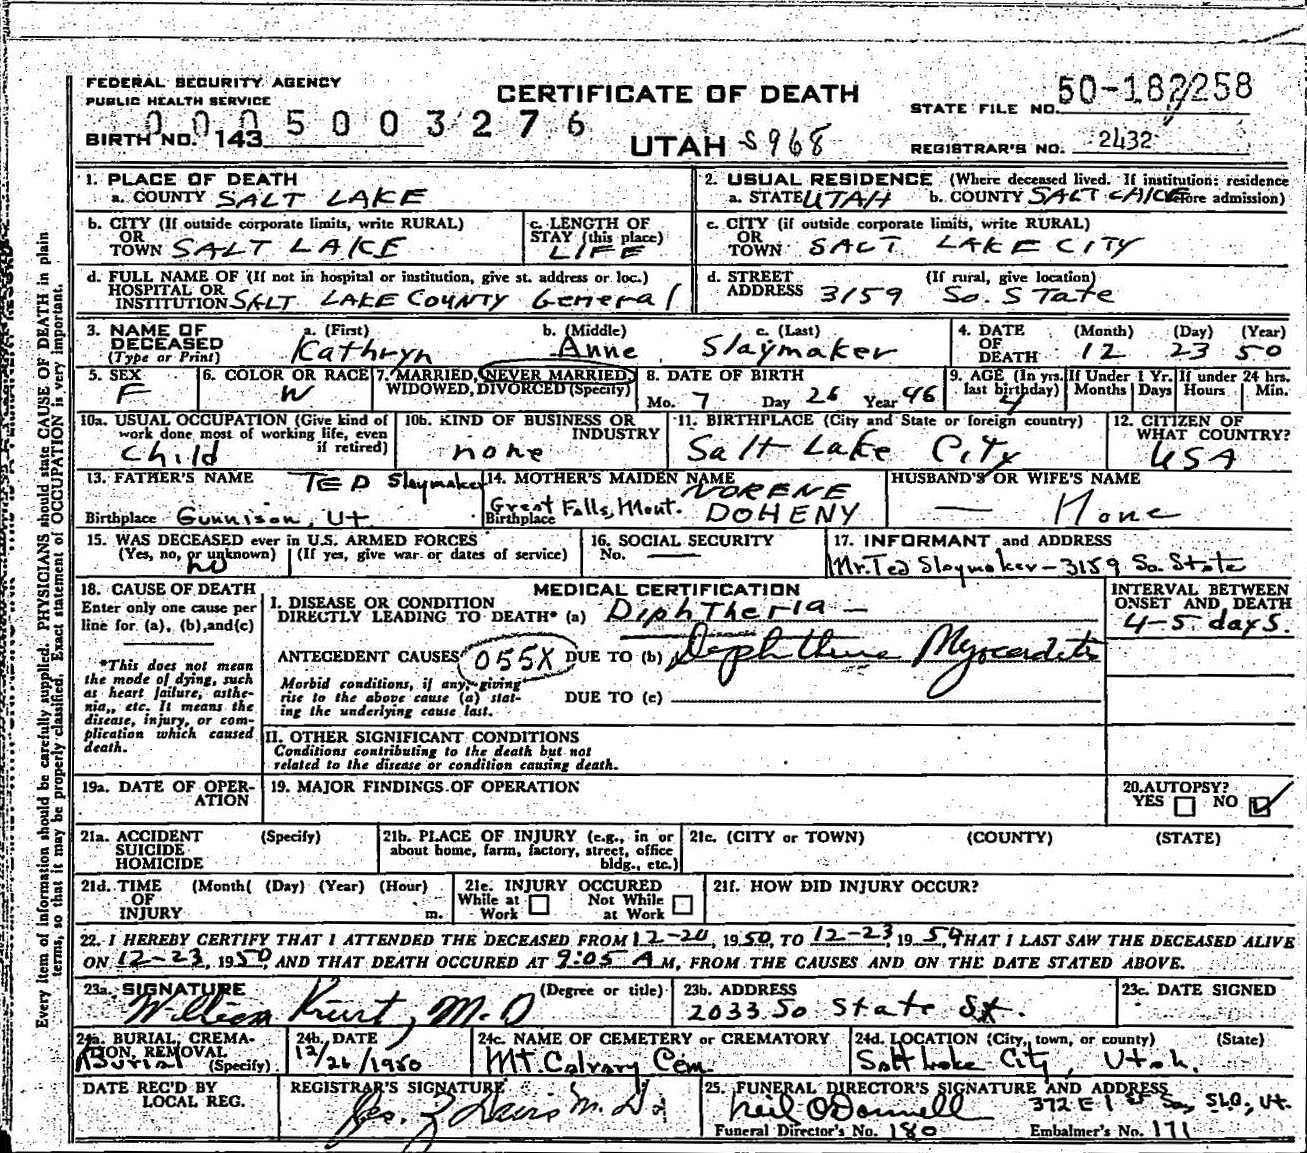 FEDERAL SECURITY AGENCY
PUBLIC HEALTH SERVICE
CERTIFICATE OF DEATH
STATE FILE NO. 50-182258
0005003276
BIRTH NO. 143
UTAH S968
REGISTRAR'S NO. 2432
1. PLACE OF DEATH
a. COUNTY SALT LAKE
2. USUAL RESIDENCE (Where deceased lived. If institution: residence before admission)
a. STATE UTAH b. COUNTY SALT LAKE
b. CITY (If outside corporate limits, write RURAL)
OR
TOWN SALT LAKE
c. LENGTH OF
STAY (this place)
LIFE
c. CITY (if outside corporate limits, write RURAL)
OR
TOWN SALT LAKE CITY
d. FULL NAME OF (If not in hospital or institution, give st. address or loc.)
HOSPITAL OR
INSTITUTION SALT LAKE COUNTY General
d. STREET (If rural, give location)
ADDRESS 3159 So. STate
3. NAME OF
DECEASED
(Type or Print)
a. (First)
Kathryn
b. (Middle)
Anne
c. (Last)
Slaymaker
4. DATE (Month) (Day) (Year)
OF
DEATH 12 23 50
5. SEX
F
6. COLOR OR RACE
W
7. MARRIED, NEVER MARRIED,
WIDOWED, DIVORCED (Specify)
8. DATE OF BIRTH
Mo. 7 Day 26 Year 46
9. AGE (In yrs.
last birthday)
4
If Under 1 Yr.
Months Days
If under 24 hrs.
Hours Min.
10a. USUAL OCCUPATION (Give kind of
work done most of working life, even
if retired)
Child
10b. KIND OF BUSINESS OR
INDUSTRY
none
11. BIRTHPLACE (City and State or foreign country)
Salt Lake City
12. CITIZEN OF
WHAT COUNTRY?
USA
13. FATHER'S NAME TED Slaymaker
Birthplace Gunnison, Ut
14. MOTHER'S MAIDEN NAME
NORENE
DOHENY
Great Falls, Mont.
Birthplace
HUSBAND'S OR WIFE'S NAME
— None
15. WAS DECEASED ever in U.S. ARMED FORCES
(Yes, no, or unknown) (If yes, give war or dates of service)
no
16. SOCIAL SECURITY
No. —
17. INFORMANT and ADDRESS
Mr. Ted Slaymaker - 3159 So. State
18. CAUSE OF DEATH
Enter only one cause per
line for (a), (b), and (c)
*This does not mean
the mode of dying, such
as heart failure, asthe-
nia,, etc. It means the
disease, injury, or com-
plication which caused
death.
MEDICAL CERTIFICATION
I. DISEASE OR CONDITION
DIRECTLY LEADING TO DEATH* (a) DiphTheria —
ANTECEDENT CAUSES 055X DUE TO (b) Diphtheric Myocarditis
Morbid conditions, if any, giving
rise to the above cause (a) stat-
ing the underlying cause last.
DUE TO (c)
INTERVAL BETWEEN
ONSET AND DEATH
4-5 days.
II. OTHER SIGNIFICANT CONDITIONS
Conditions contributing to the death but not
related to the disease or condition causing death.
19a. DATE OF OPER-
ATION
19. MAJOR FINDINGS OF OPERATION
20. AUTOPSY?
YES NO
21a. ACCIDENT (Specify)
SUICIDE
HOMICIDE
21b. PLACE OF INJURY (e.g., in or
about home, farm, factory, street, office
bldg., etc.)
21c. (CITY or TOWN) (COUNTY) (STATE)
21d. TIME (Month( (Day) (Year) (Hour)
OF
INJURY m.
21e. INJURY OCCURED
While at Work
Not While at Work
21f. HOW DID INJURY OCCUR?
22. I HEREBY CERTIFY THAT I ATTENDED THE DECEASED FROM 12-20, 1950, TO 12-23, 1950, THAT I LAST SAW THE DECEASED ALIVE
ON 12-23, 1950, AND THAT DEATH OCCURED AT 9:05 A M, FROM THE CAUSES AND ON THE DATE STATED ABOVE.
23a. SIGNATURE (Degree or title)
William M.D
23b. ADDRESS
2033 So State St.
23c. DATE SIGNED
24a. BURIAL, CREMA-
TION, REMOVAL
Burial (Specify)
24b. DATE
12/26/1950
24c. NAME OF CEMETERY or CREMATORY
Mt. Calvary Cem.
24d. LOCATION (City, town, or county) (State)
Salt Lake City, Utah.
DATE REC'D BY
LOCAL REG.
REGISTRAR'S SIGNATURE
25. FUNERAL DIRECTOR'S SIGNATURE AND ADDRESS
Neil O'Donnell 372 E 1st So, SLC, Ut.
Funeral Director's No. 180 Embalmer's No. 171
Every item of information should be carefully supplied. PHYSICIANS should state CAUSE OF DEATH in plain
terms, so that it may be properly classified. Exact statement of OCCUPATION is very important.